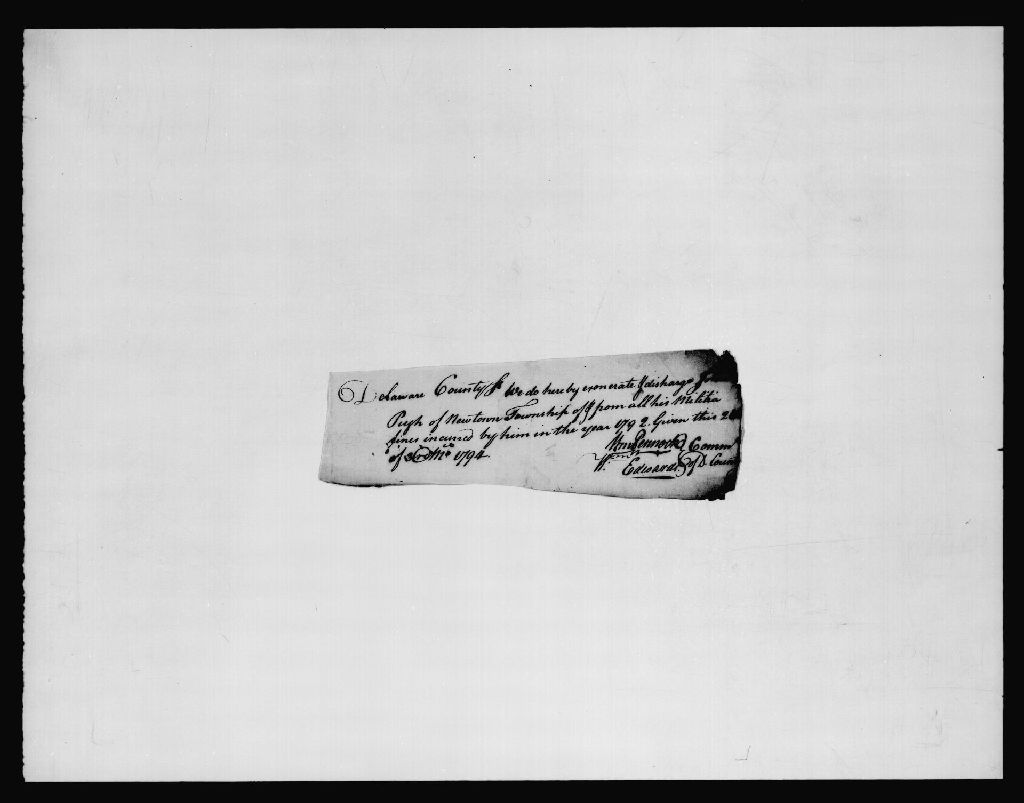 Delaware County Ss We do hereby exonerate & discharge
Pugh of Newtown Township of & from all his Militia
fines incurred by him in the year 1792. Given this
of Mo. 1794
Wm Pennock Comm
Wm Edwards of D. County